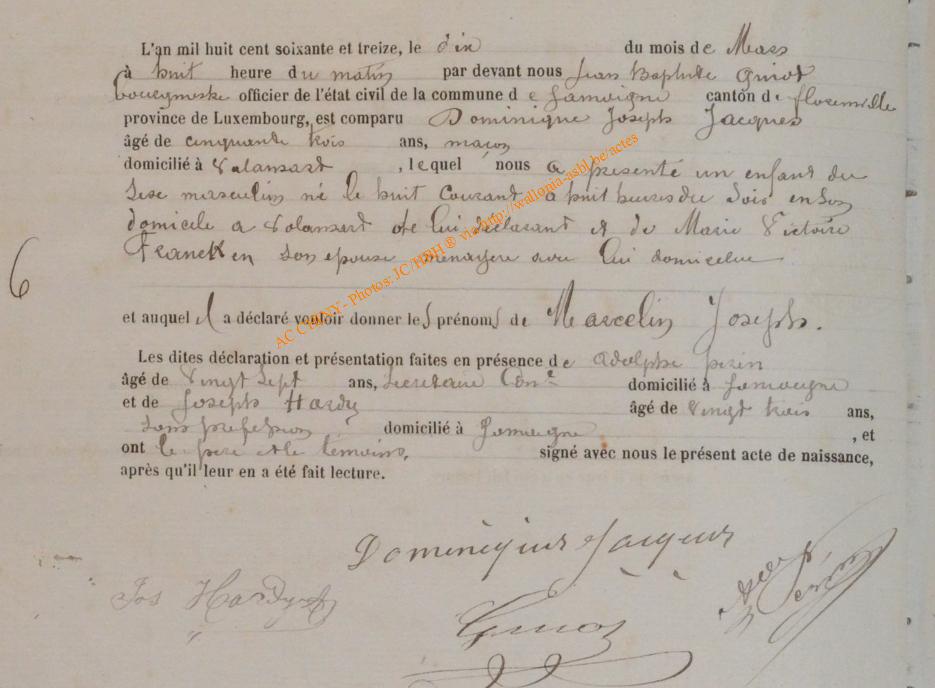 L'an mil huit cent soixante et treize, le dix du mois de Mars
à huit heure du matin par devant nous Jean Baptiste Guiot
bourgmestre officier de l'état civil de la commune de Jamoigne canton de florenville
province de Luxembourg, est comparu Dominique Joseph Jacques
âgé de cinquante trois ans, maçon
domicilié à Valansart, lequel nous a présenté un enfant du
sexe masculin né le huit courant à huit heures du soir en son
domicile a Valansart de lui déclarant et de Marie Victoire
Francken son epouse menagere avec lui domiciliée
6
et auquel il a déclaré vouloir donner les prénoms de Marcelin Joseph.
Les dites déclaration et présentation faites en présence de adolphe perin
âgé de Vingt Sept ans, Secretaire Con.el domicilié à Jamoigne
et de Joseph Hardy âgé de Vingt trois ans,
sans profession domicilié à Jamoigne, et
ont le pere et le témoins, signé avec nous le présent acte de naissance,
après qu'il leur en a été fait lecture.
Dominique Jacques
Jos Hardy
Guiot
Perin
AC CHINY - Photos: JC/HDH ® via http://wallonia-asbl.be/actes